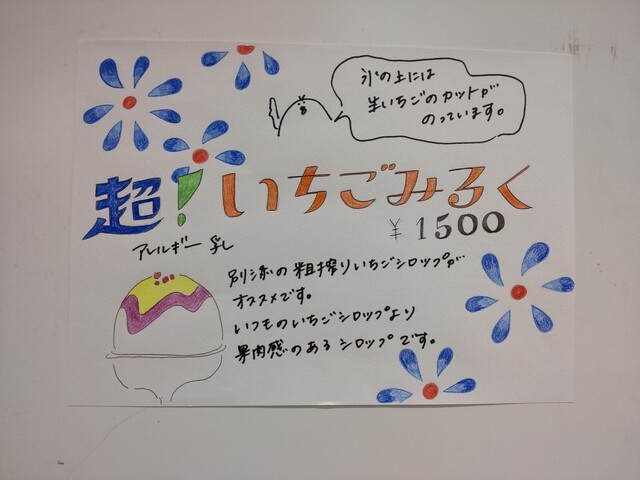 氷の上には
生いちごのカットが
のっています。
超!いちごみるく
¥1500
アレルギー 乳
別添の粗搾りいちごシロップが
オススメです。
いつものいちごシロップより
果肉感のあるシロップです。